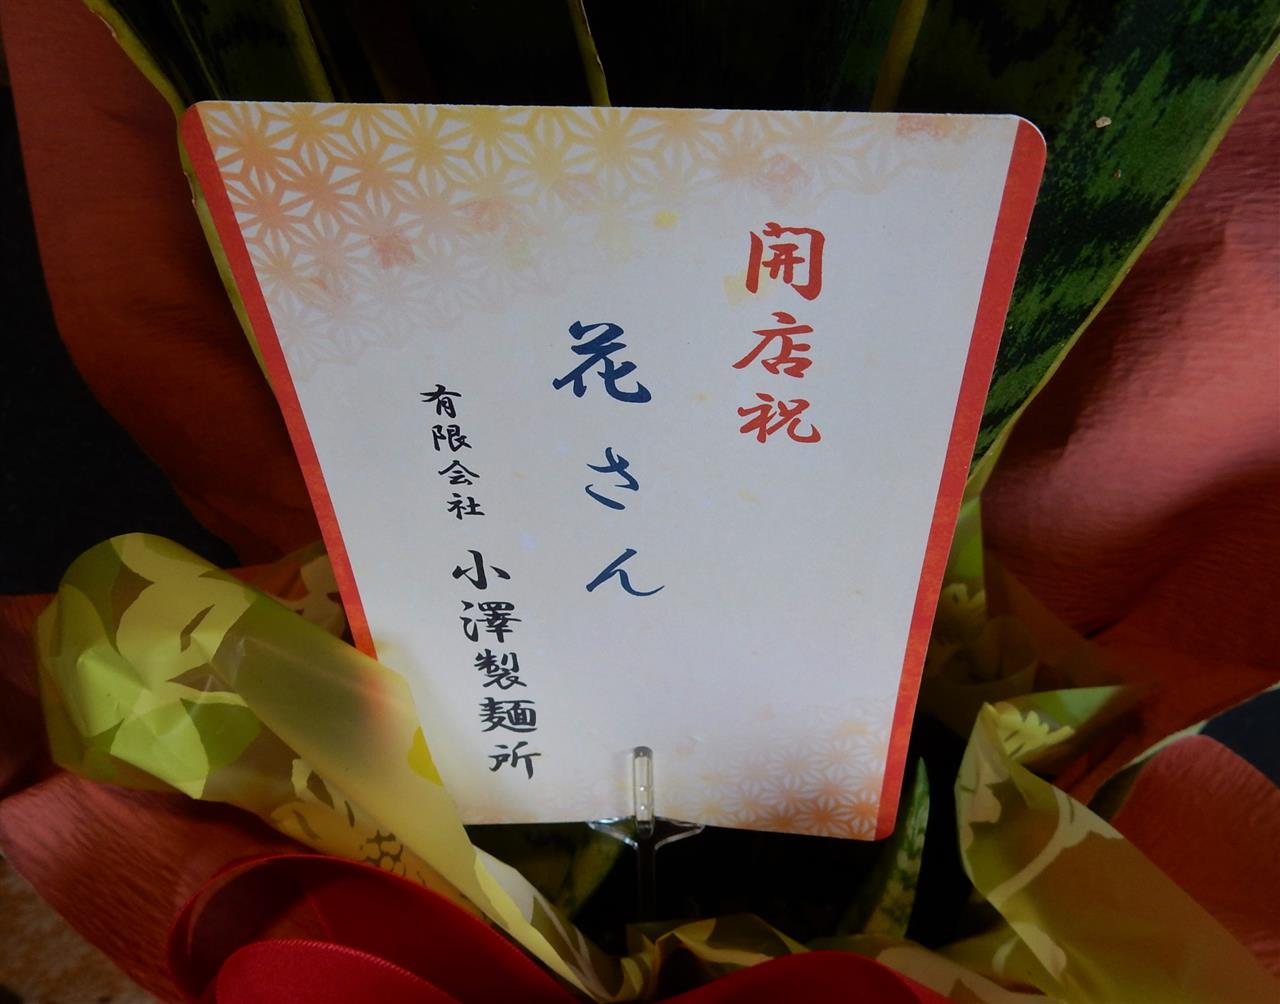 開店祝
花さん
有限会社 小澤製麺所